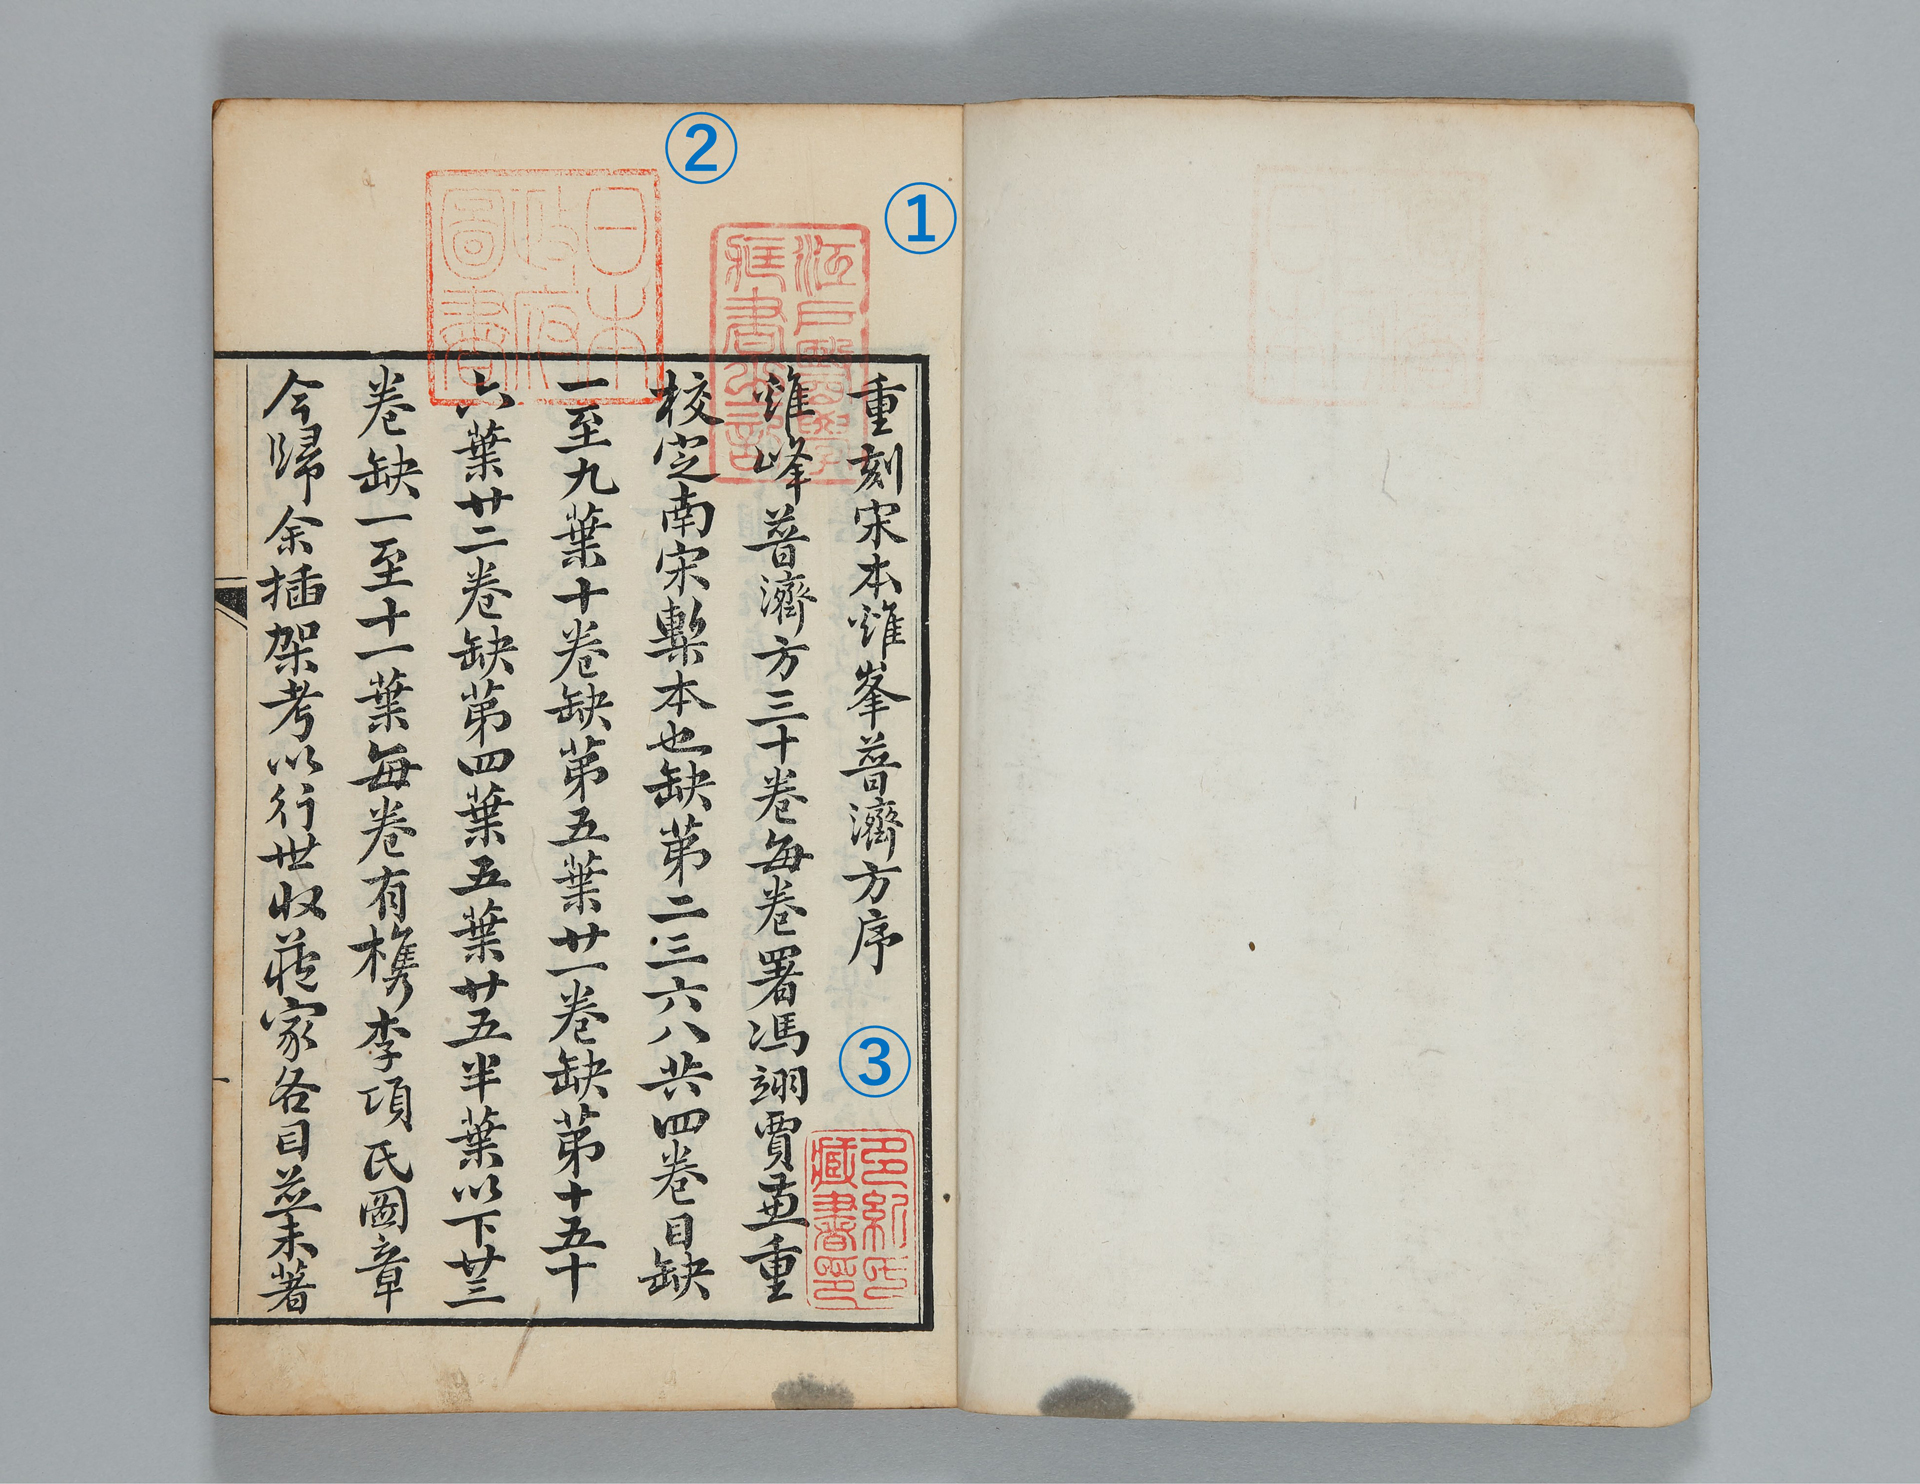 ①
江戸醫學
藏書之記
②
日本
政府
圖書
重刻宋本雞峯普濟方序
③
多紀氏
藏書印
雞峰普濟方三十卷每卷署馮翊賈兼重
校定南宋槧本也缺第二三六八共四卷目缺
一至九葉十卷缺第五葉廿一卷缺第十五十
六葉廿二卷缺第四葉五葉廿五半葉以下廿三
卷缺一至十一葉每卷有檇李項氏圖章
今歸余插架考以行世收藏家各目並未著